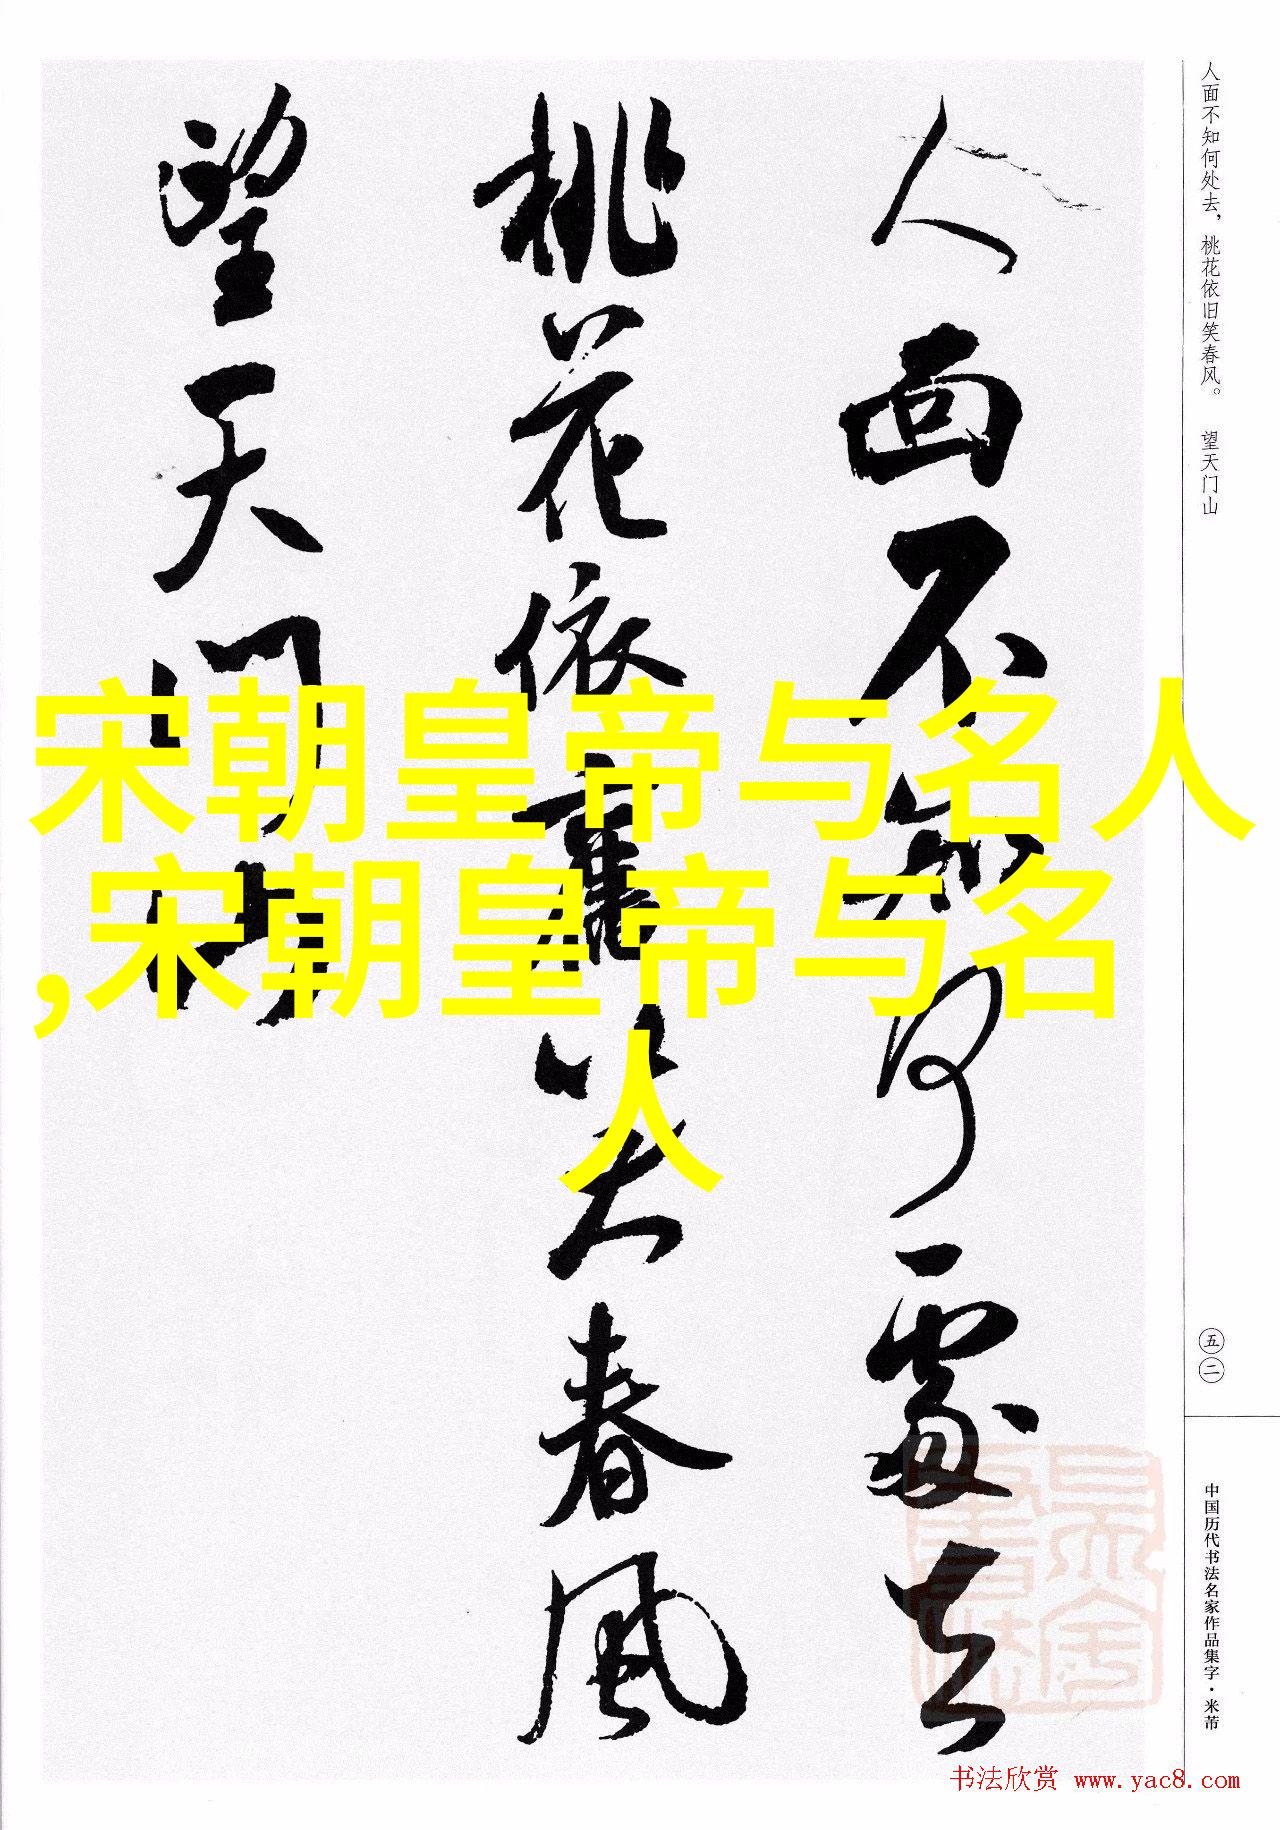 人面不知何处去，桃花依旧笑春风。 望天门山
人面不知何處去
桃花依舊笑春風
望天門山
宋朝皇帝与名人
,宋朝皇帝与名
人
五二
中国历代书法名家作品集字·米芾
书法欣赏 www.yac8.com